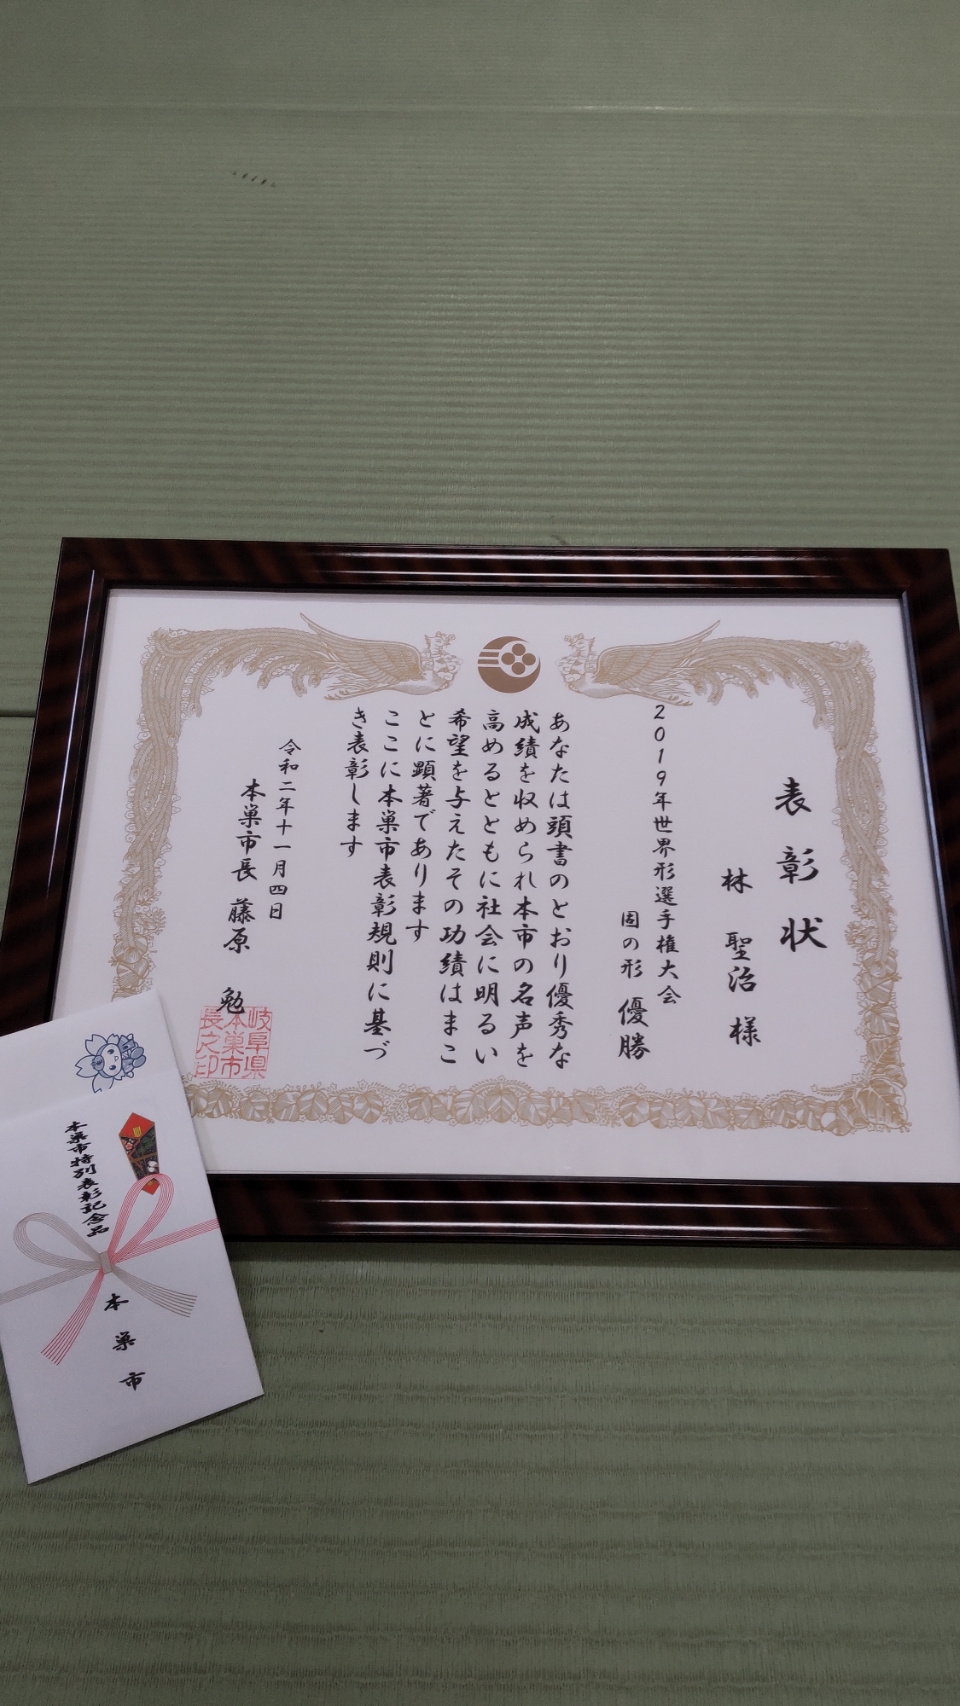 表彰状
林 聖治 様
2019年世界形選手権大会
固の形 優勝
あなたは頭書のとおり優秀な
成績を収められ本市の名声を
高めるとともに社会に明るい
希望を与えたその功績はまこ
とに顕著であります
ここに本巣市表彰規則に基づ
き表彰します
令和二年十一月四日
本巣市長 藤原 勉
岐阜県
本巣市
長之印
本巣市特別表彰記念品
本巣市